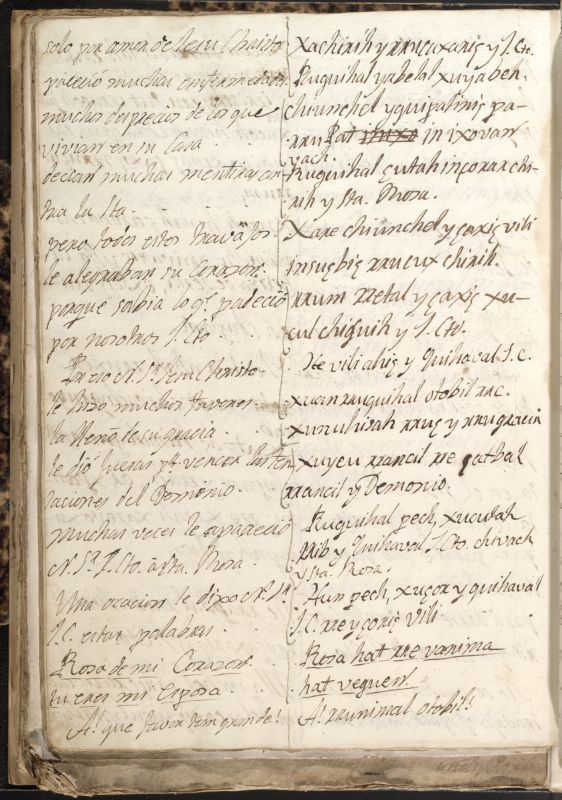 solo por amor de Jesu Christo
padeció muchas enfermedades
muchos desprecios de los que
vivian en su Casa.
decian muchas mentiras con-
tra la Sta.
pero todos estos travajos
le alegraban su Corazon.
porque sabia lo q.e padeció
por nosotros J. Cto.
Por eso N. Sr Jesu Christo
le hizo muchos favores.
la llenó de su gracia.
le dió fuerzas pa. vencer las ten-
taciones del Demonio.
muchas veces le apareció
N. Sr. J. Cto. á Sta. Rosa.
Una ocacion le dixo N. Sr
J. C. estas palabras.
Rosa de mi Corazon.
tu eres mi Esposa.
A! que favor tan grande!
xachirih y rrucuxaniz y J. Cto.
Ruquihal yabelal xuyabeh.
chiunchel y quipaliniz pa-
rru Pat in ixovan
vach.
Ruquihal çutah inçorar chi-
rih y Sta. Rosa.
Xare chiunchel y çaxiz vili
insuçbiz rrucux chirih.
rrum retal y çaxiz xu-
cul chiquih y J. Cto.
He vili ahiz y Quihaval J. C.
xuan ruquihal otobil rre.
xunuhisah rruz y rru gracia
xuyeu rrancil rre qatbal
rrancil y Demonio.
Ruquihal pech, xucutah
rrib y Quihaval J. Cto. chivach
y Sta. Rosa.
Hun pech, xuçor y quihaval
J. C. rre y çoriz vili
Rosa hat rre vanima
hat veguen.
A! rrunimal otobil!